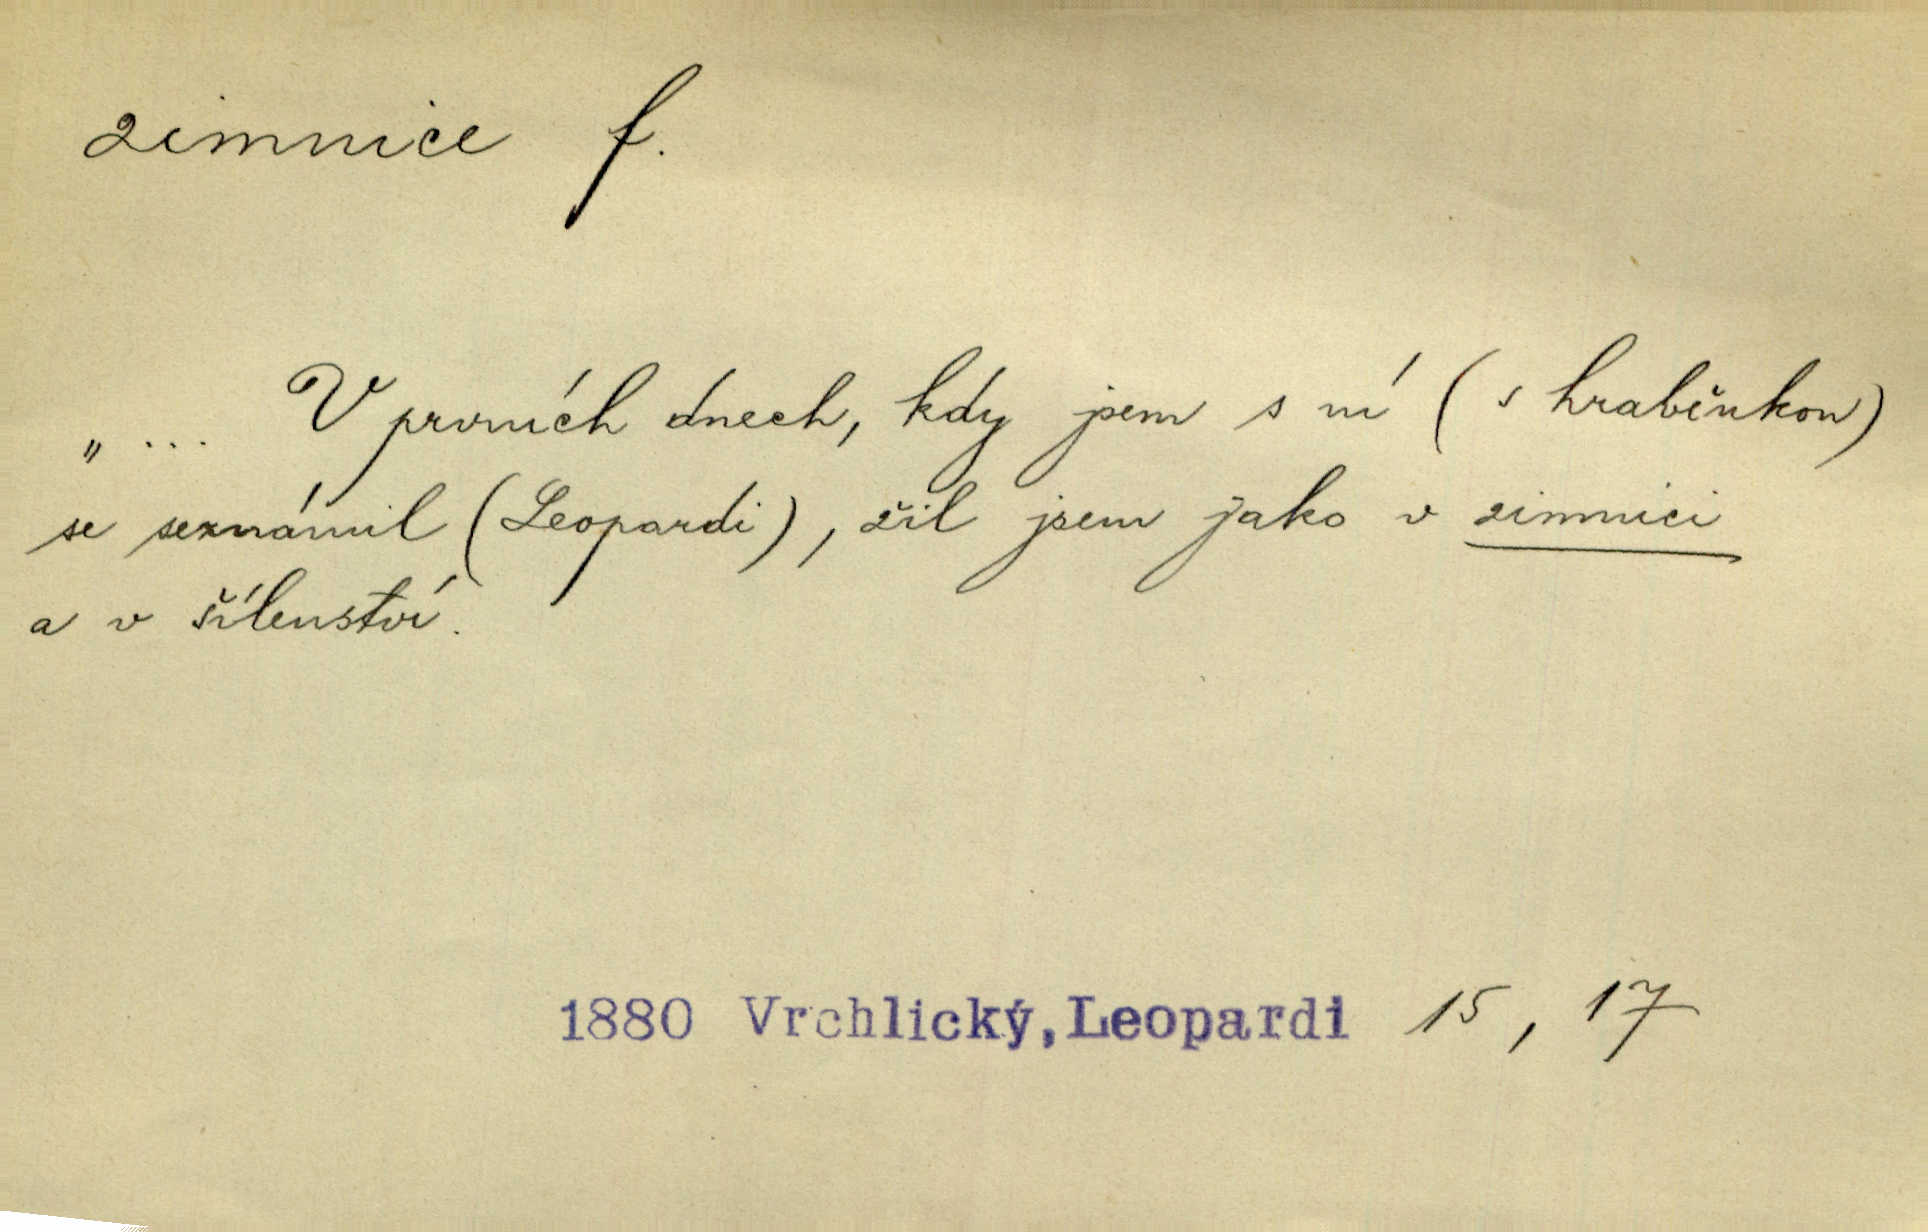 zimnice f.
„ ... V prvních dnech, kdy jsem s ní (s hraběnkou)
se seznámil (Leopardi), žil jsem jako v zimnici
a v šílenství.
1880 Vrchlický, Leopardi 15, 17